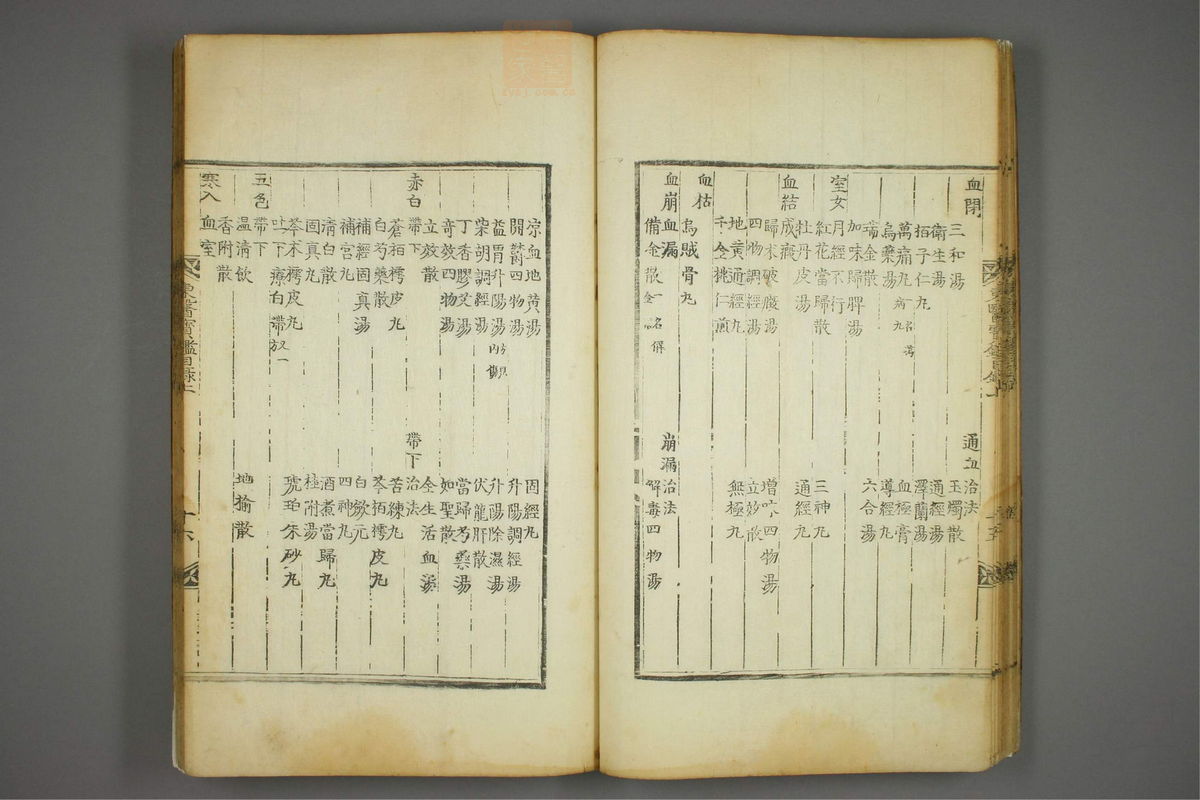 血閉　通血治法
三和湯　玉燭散
衛生湯　通經湯
栢子仁丸　澤蘭湯
萬痛丸　血極膏
烏藥湯　導經丸
瑞金散　六合湯
加味歸脾湯
室女月經不行
紅花當歸散　三神丸
牡丹皮湯　通經丸
血結成瘕
歸朮破癥湯　增味四物湯
四物調經湯　立妙散
地黃通經丸　無極丸
千金桃仁煎
血枯
烏賊骨丸
血崩血漏　崩漏治法
備金散　解毒四物湯
涼血地黃湯　固經丸
開鬱四物湯　升陽調經湯
益胃升陽湯方見內傷　升陽除濕湯
柴胡調經湯　伏龍肝散
丁香膠艾湯　當歸芍藥湯
奇效四物湯　如聖散
立效散　全生活血湯
赤白帶下　帶下治法
蒼栢樗皮丸　苦練丸
白芍藥散　芩栢樗皮丸
補經固真湯　白歛元
補宮丸　四神丸
清白散　酒煮當歸丸
固真丸　桂附湯
苓朮樗皮丸　琥珀朱砂丸
吐下療白帶
五色帶下
溫清飲　地楡散
香附散
寒入血室
東醫寶鑑目錄上　十六